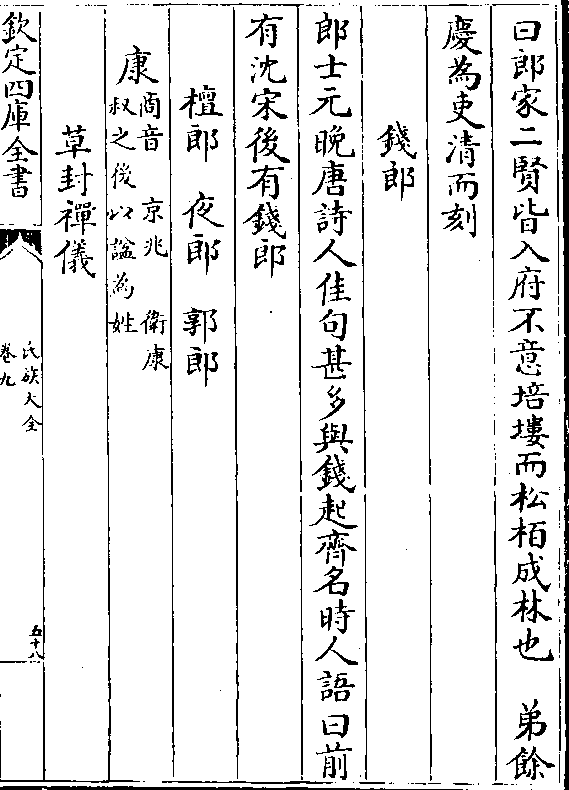 曰郎家二賢皆入府不意培塿而松栢成林也　弟餘
慶為吏清而刻
錢郎
郎士元晚唐詩人佳句甚多與錢起齊名時人語曰前
有沈宋後有錢郎
檀郎　夜郎　郭郎
康商音　京兆　衛康叔之後以諡為姓
草封禪儀
欽定四庫全書
氏族大全
卷九
五十八